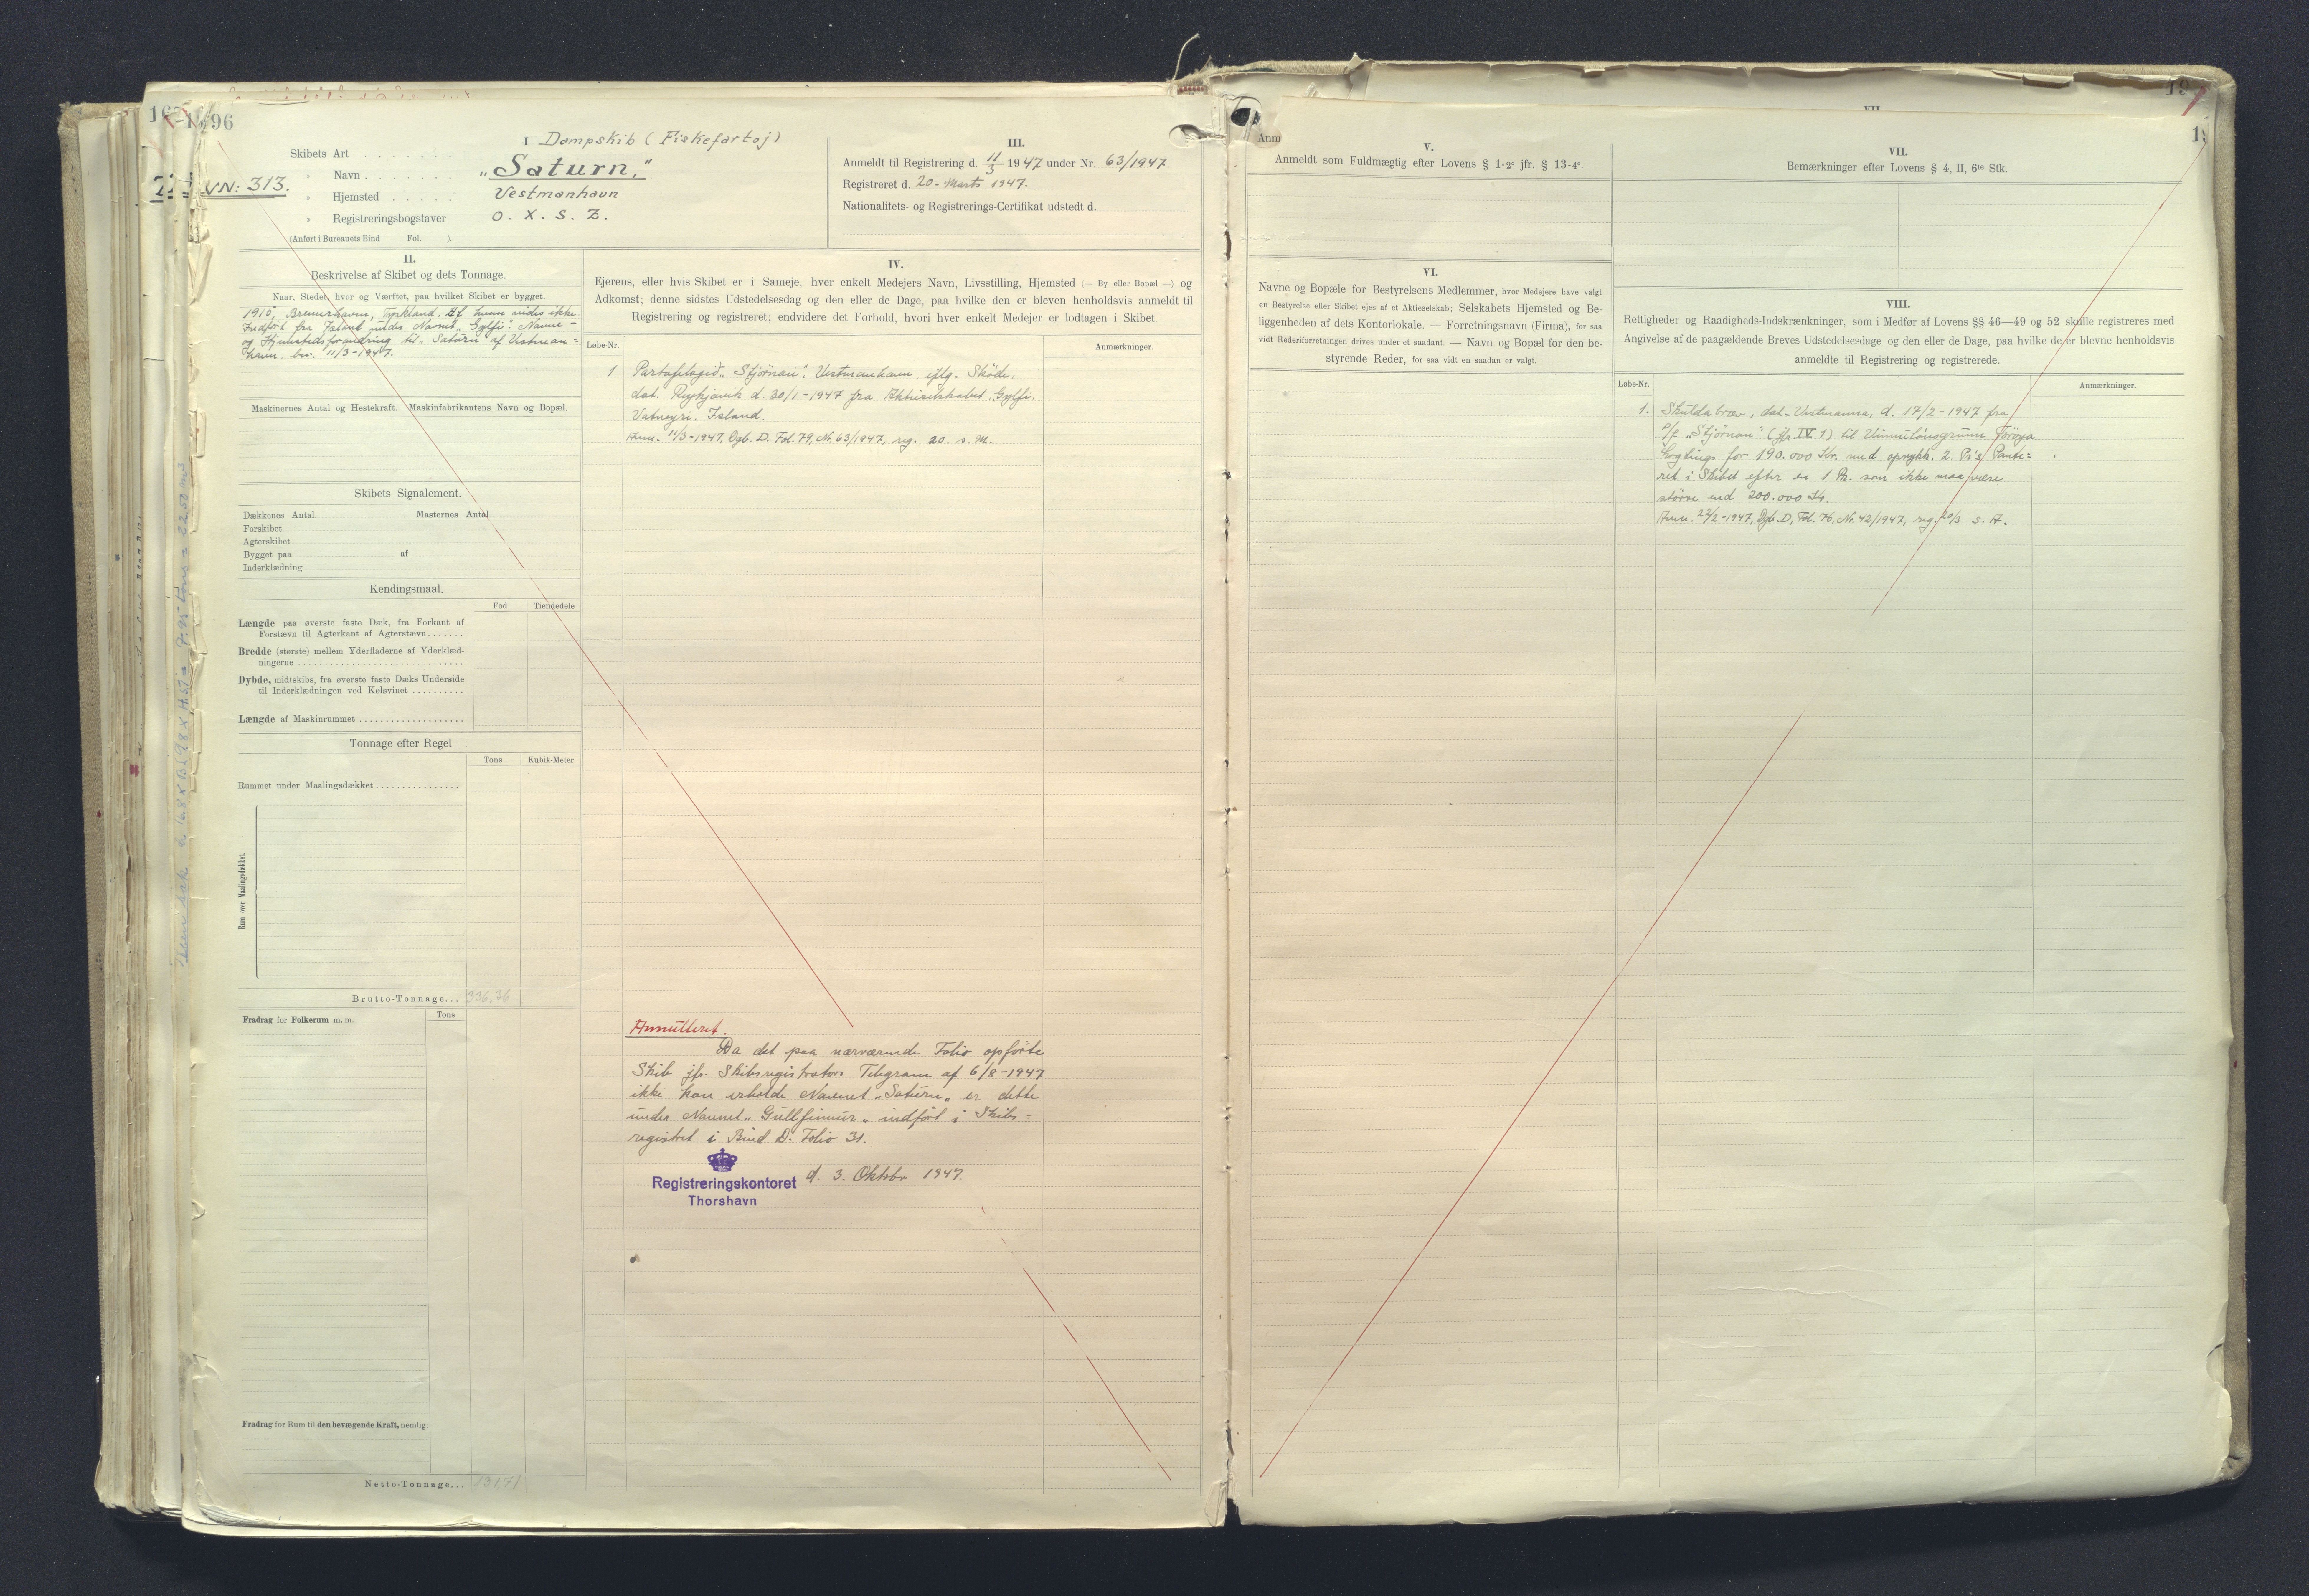 196
VN: 313.
I Dampskib (Fiskefartøj)
Skibets Art
" Navn "Saturn,"
" Hjemsted Vestmanhavn
" Registreringsbogstaver O. X. S. Z.
(Anført i Bureauets Bind Fol. ).
III.
Anmeldt til Registrering d. 11/3 1947 under Nr. 63/1947
Registreret d. 20 - Marts 1947.
Nationalitets- og Registrerings-Certifikat udstedt d.
II.
Beskrivelse af Skibet og dets Tonnage.
Naar, Stedet, hvor og Værftet, paa hvilket Skibet er bygget.
1915, Bremerhaven, Tyskland. Af hvem vides ikke.
Indført fra Island under Navnet "Gylfi". Navne-
og Hjemstedsforandring til "Saturn" af Vestman=
havn, bev. 11/3-1947.
Maskinernes Antal og Hestekraft. Maskinfabrikantens Navn og Bopæl.
Skibets Signalement.
Dækkenes Antal Masternes Antal
Forskibet
Agterskibet
Bygget paa af
Inderklædning
Kendingsmaal.
Fod Tiendedele
Længde paa øverste faste Dæk, fra Forkant af
Forstævn til Agterkant af Agterstævn
Bredde (største) mellem Yderfladerne af Yderklæd-
ningerne
Dybde, midtskibs, fra øverste faste Dæks Underside
til Inderklædningen ved Kølsvinet
Længde af Maskinrummet
Tonnage efter Regel
Tons Kubik-Meter
Rummet under Maalingsdækket
Rum over Maalingsdækket.
Brutto-Tonnage... 336,36
Fradrag for Folkerum m. m. Tons
Fradrag for Rum til den bevægende Kraft, nemlig:
Netto-Tonnage... 131,71
IV.
Ejerens, eller hvis Skibet er i Sameje, hver enkelt Medejers Navn, Livsstilling, Hjemsted (— By eller Bopæl —) og
Adkomst; denne sidstes Udstedelsesdag og den eller de Dage, paa hvilke den er bleven henholdsvis anmeldt til
Registrering og registreret; endvidere det Forhold, hvori hver enkelt Medejer er lodtagen i Skibet.
Løbe-Nr. Anmærkninger.
1 Partafelagið "Stjørnan". Vestmanhavn, iflg. Skøde,
dat. Reykjavik d. 30/1-1947 fra Aktieselskabet "Gylfi",
Vatneyri. Island.
Anm. 11/3-1947, Dgb. D. Fol. 79, Nr. 63/1947, reg. 20. s. M.
Annulleret.
Da det paa nærværende Folio opførte
Skib jfr. Skibsregistrators Telegram af 6/8-1947
ikke kan erholde Navnet "Saturn" er dette
under Navnet "Gullfinnur" indført i Skibs=
registret i Bind D. Folio 31.
Registreringskontoret d. 3. Oktobr 1947.
Thorshavn
Anm
V.
Anmeldt som Fuldmægtig efter Lovens § 1-2° jfr. § 13-4°.
VI.
Navne og Bopæle for Bestyrelsens Medlemmer, hvor Medejere have valgt
en Bestyrelse eller Skibet ejes af et Aktieselskab; Selskabets Hjemsted og Be-
liggenheden af dets Kontorlokale. — Forretningsnavn (Firma), for saa
vidt Rederiforretningen drives under et saadant. — Navn og Bopæl for den be-
styrende Reder, for saa vidt en saadan er valgt.
VII.
VII.
Bemærkninger efter Lovens § 4, II, 6te Stk.
VIII.
Rettigheder og Raadigheds-Indskrænkninger, som i Medfør af Lovens §§ 46—49 og 52 skulle registreres med
Angivelse af de paagældende Breves Udstedelsesdage og den eller de Dage, paa hvilke de er blevne henholdsvis
anmeldte til Registrering og registrerede.
Løbe-Nr. Anmærkninger.
1. Skuldabræv, dat. Vestmanna, d. 17/2-1947 fra
P/f "Stjørnan" (jfr. IV 1) til Vinnulánsgrunn Føroya
Løgtings for 190.000 Kr. med oprykk. 2 Pr's Pante=
ret i Skibet efter en 1 Pr. som ikke maa være
større end 200.000 Kr.
Anm. 22/2-1947, Dgb. D, Fol. 76, Nr. 42/1947, reg. 20/3 s. A.